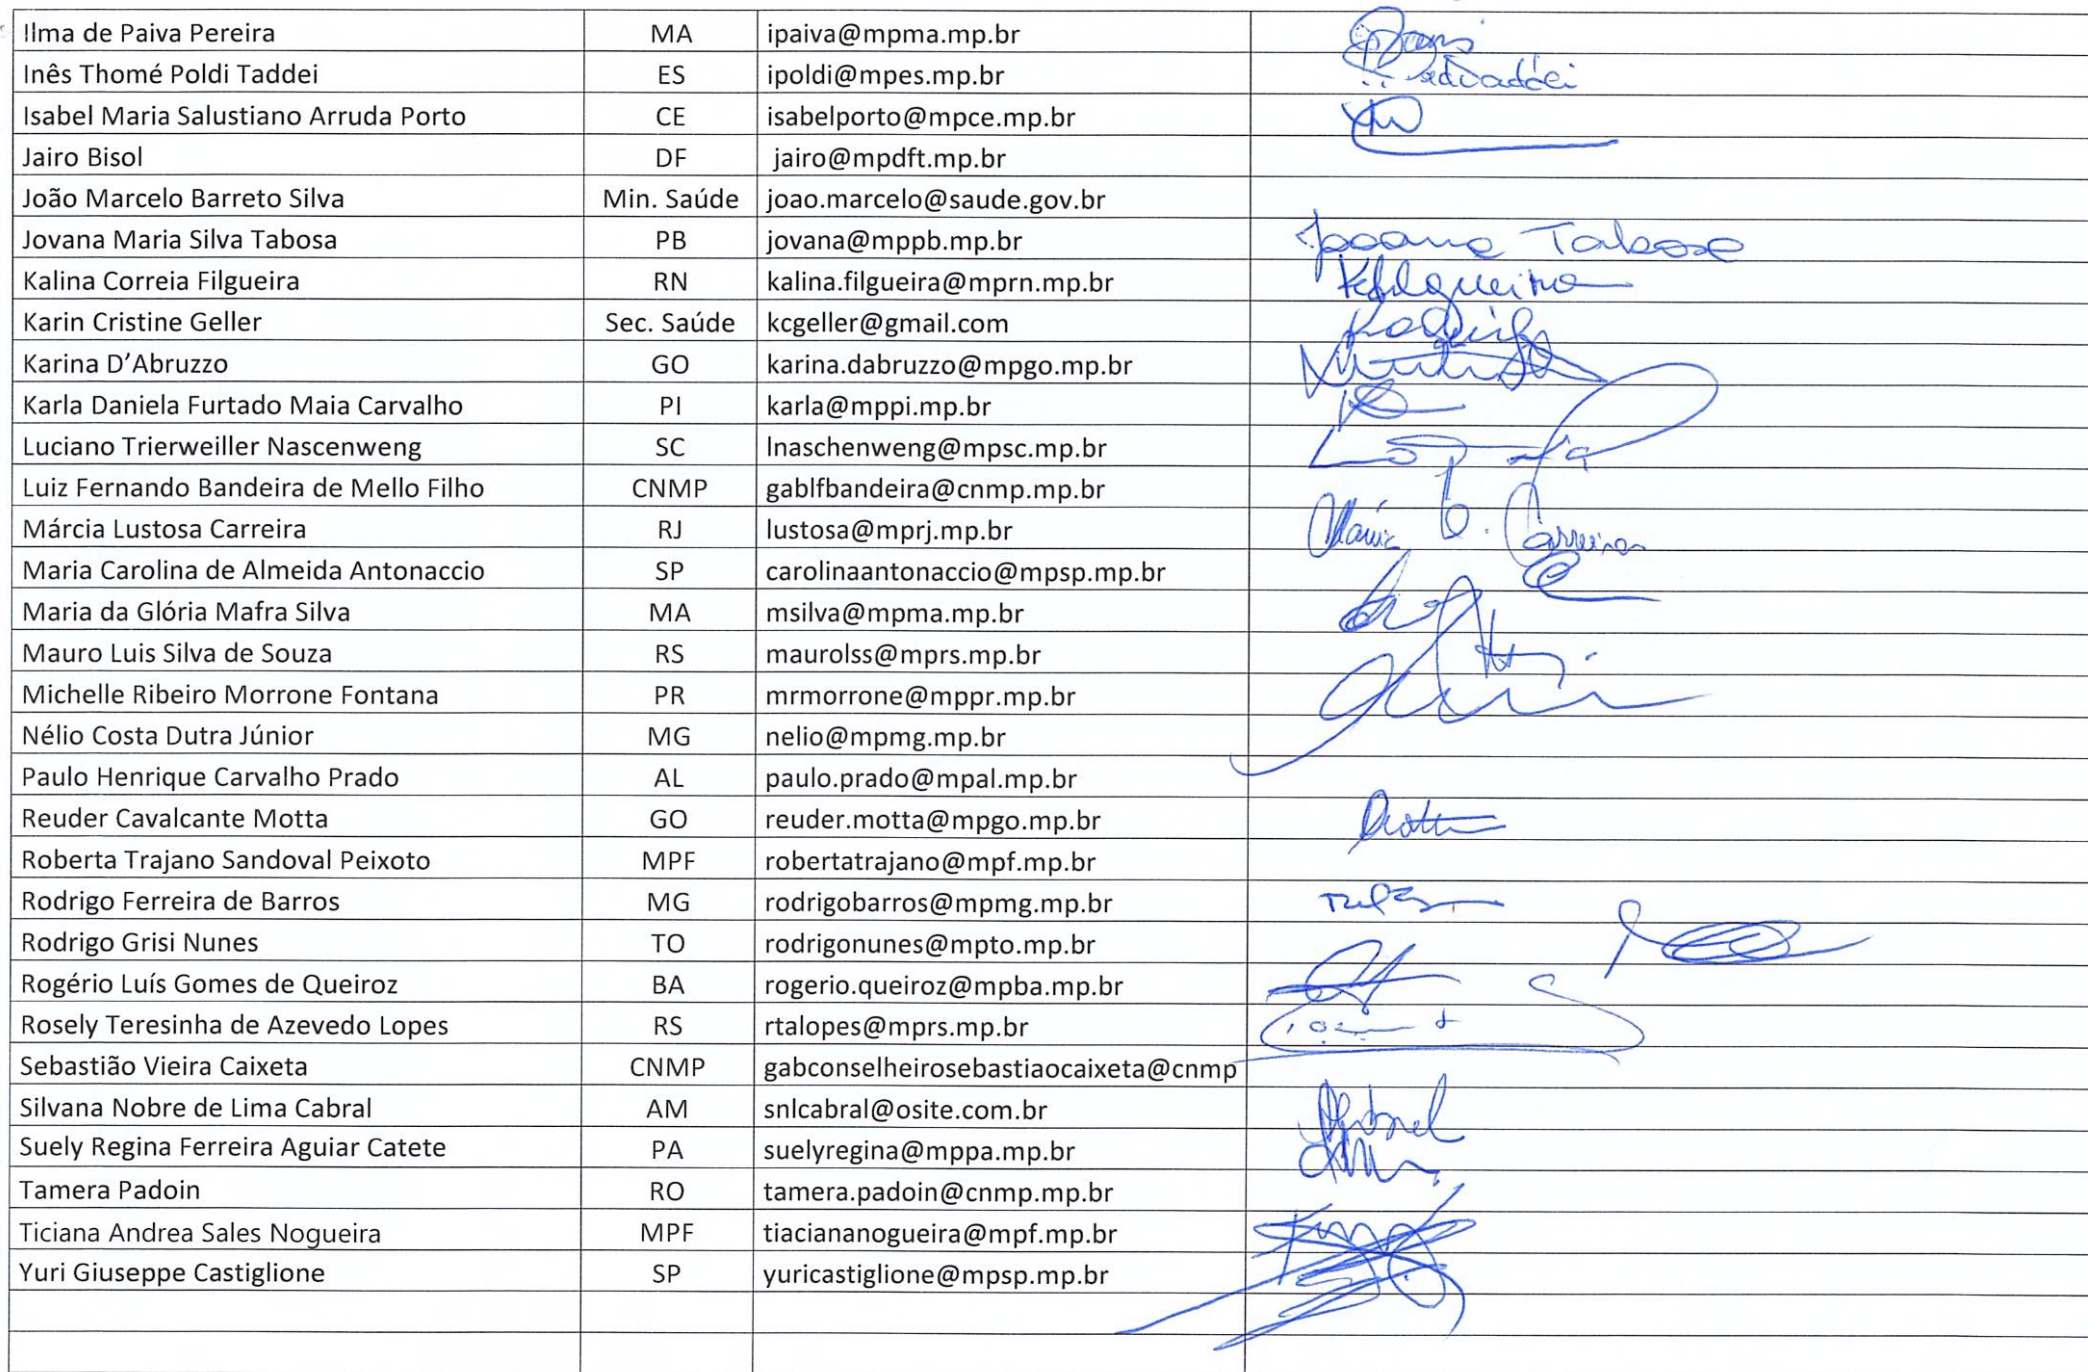 Ilma de Paiva Pereira MA ipaiva@mpma.mp.br
Inês Thomé Poldi Taddei ES ipoldi@mpes.mp.br
Isabel Maria Salustiano Arruda Porto CE isabelporto@mpce.mp.br
Jairo Bisol DF jairo@mpdft.mp.br
João Marcelo Barreto Silva Min. Saúde joao.marcelo@saude.gov.br
Jovana Maria Silva Tabosa PB jovana@mppb.mp.br Jovana Tabosa
Kalina Correia Filgueira RN kalina.filgueira@mprn.mp.br Kfilgueira
Karin Cristine Geller Sec. Saúde kcgeller@gmail.com
Karina D’Abruzzo GO karina.dabruzzo@mpgo.mp.br
Karla Daniela Furtado Maia Carvalho PI karla@mppi.mp.br
Luciano Trierweiller Nascenweng SC lnaschenweng@mpsc.mp.br
Luiz Fernando Bandeira de Mello Filho CNMP gablfbandeira@cnmp.mp.br
Márcia Lustosa Carreira RJ lustosa@mprj.mp.br Márcia L. Carreira
Maria Carolina de Almeida Antonaccio SP carolinaantonaccio@mpsp.mp.br
Maria da Glória Mafra Silva MA msilva@mpma.mp.br
Mauro Luis Silva de Souza RS maurolss@mprs.mp.br
Michelle Ribeiro Morrone Fontana PR mrmorrone@mppr.mp.br
Nélio Costa Dutra Júnior MG nelio@mpmg.mp.br
Paulo Henrique Carvalho Prado AL paulo.prado@mpal.mp.br
Reuder Cavalcante Motta GO reuder.motta@mpgo.mp.br
Roberta Trajano Sandoval Peixoto MPF robertatrajano@mpf.mp.br
Rodrigo Ferreira de Barros MG rodrigobarros@mpmg.mp.br
Rodrigo Grisi Nunes TO rodrigonunes@mpto.mp.br
Rogério Luís Gomes de Queiroz BA rogerio.queiroz@mpba.mp.br
Rosely Teresinha de Azevedo Lopes RS rtalopes@mprs.mp.br
Sebastião Vieira Caixeta CNMP gabconselheirosebastiaocaixeta@cnmp
Silvana Nobre de Lima Cabral AM snlcabral@osite.com.br
Suely Regina Ferreira Aguiar Catete PA suelyregina@mppa.mp.br
Tamera Padoin RO tamera.padoin@cnmp.mp.br
Ticiana Andrea Sales Nogueira MPF tiaciananogueira@mpf.mp.br
Yuri Giuseppe Castiglione SP yuricastiglione@mpsp.mp.br